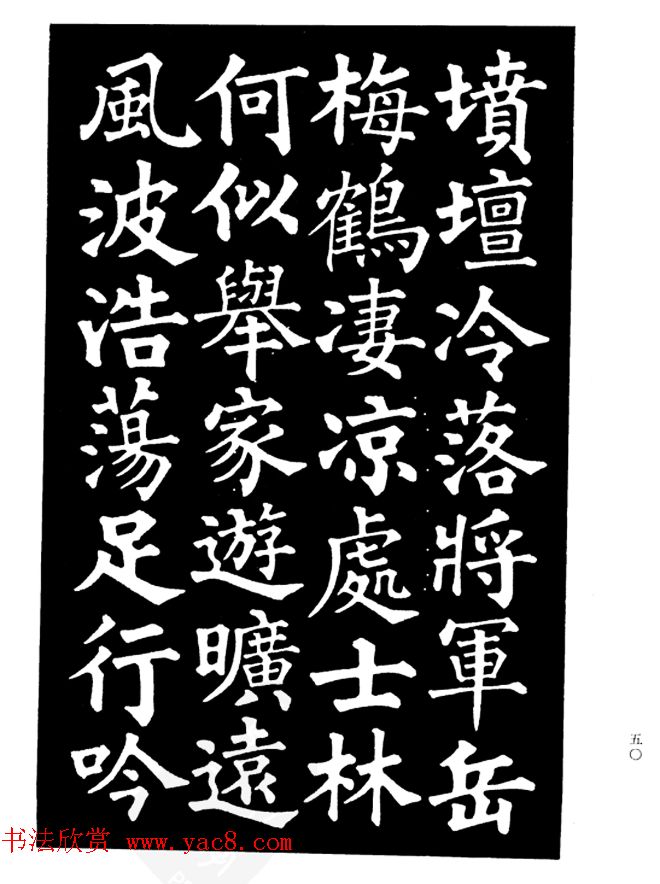 墳壇冷落將軍岳
梅鶴凄凉處士林
何似舉家遊曠遠
風波浩蕩足行吟
五〇
书法欣赏 www.yac8.com